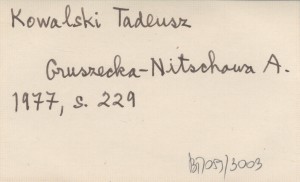 Kowalski Tadeusz
Gruszecka-Nitschowa A.
1977, s. 229